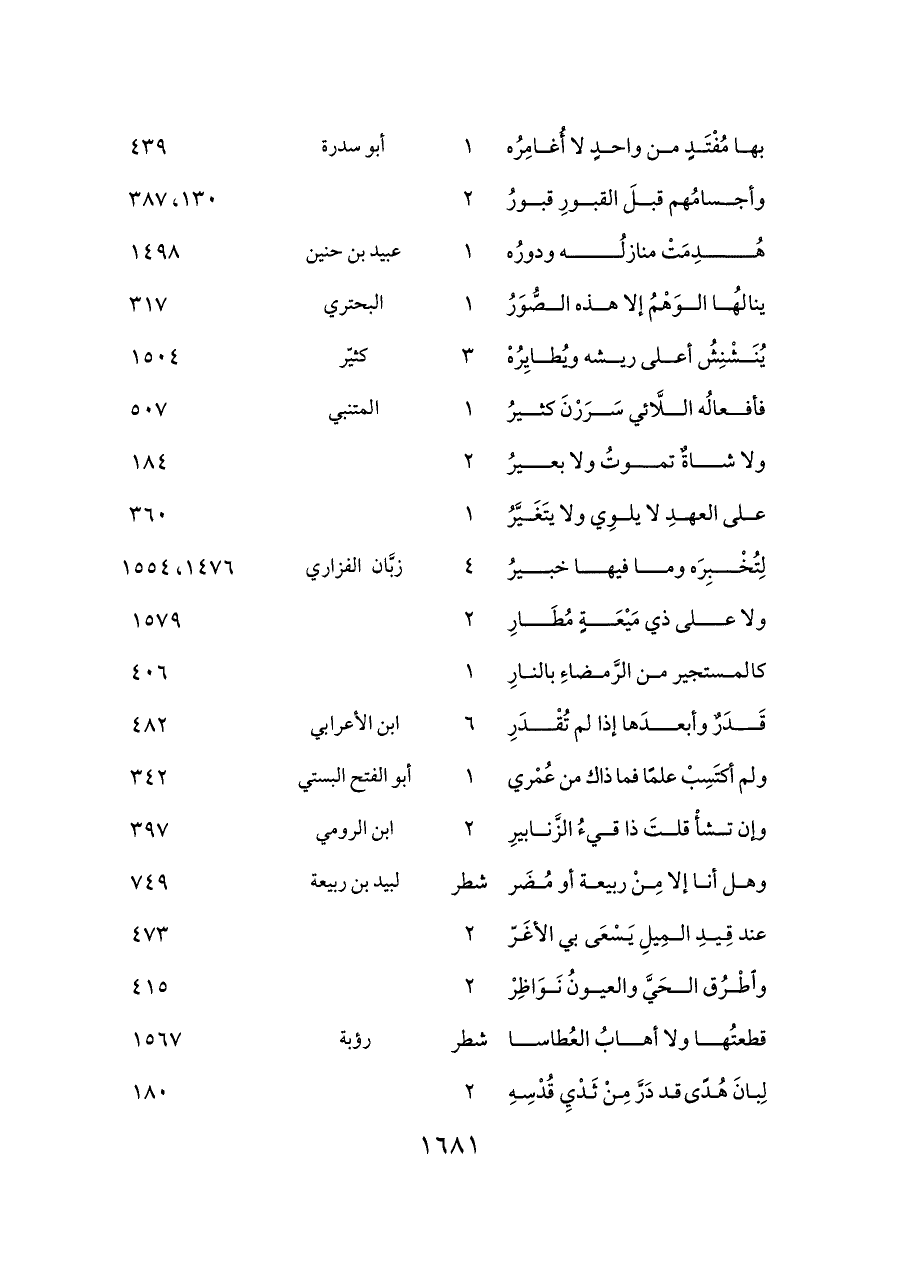 بها مُفْتَدٍ من واحدٍ لا أُغامِرُه ١ أبو سدرة ٤٣٩
وأجسامُهم قبلَ القبورِ قبورُ ٢ ١٣٠، ٣٨٧
هُدِمَتْ منازلُه ودورُه ١ عبيد بن حنين ١٤٩٨
ينالهُا الوَهْمُ إلا هذه الصُّوَرُ ١ البحتري ٣١٧
يُنَشْنِشُ أعلى ريشه ويُطايِرُهْ ٣ كثيّر ١٥٠٤
فأفعالُه اللَّائي سَرَرْنَ كثيرُ ١ المتنبي ٥٠٧
ولا شاةٌ تموتُ ولا بعيرُ ٢ ١٨٤
على العهدِ لا يلوِي ولا يتَغَيَّرُ ١ ٣٦٠
لِتُخْبِرَه وما فيها خبيرُ ٤ زبَّان الفزاري ١٤٧٦، ١٥٥٤
ولا على ذي مَيْعَةٍ مُطَارِ ٢ ١٥٧٩
كالمستجير من الرَّمضاءِ بالنارِ ١ ٤٠٦
قَدَرٌ وأبعدَها إذا لم تُقْدَرِ ٦ ابن الأعرابي ٤٨٢
ولم أكتَسِبْ علمًا فما ذاك من عُمْري ١ أبو الفتح البستي ٣٤٢
وإن تشأْ قلتَ ذا قيءُ الزَّنابيرِ ٢ ابن الرومي ٣٩٧
وهل أنا إلا مِنْ ربيعة أو مُضَر شطر لبيد بن ربيعة ٧٤٩
عند قِيدِ الميلِ يَسْعَى بي الأغَرّ ٢ ٤٧٣
وٱطْرُق الحَيَّ والعيونُ نَوَاظِرْ ٢ ٤١٥
قطعتُها ولا أهابُ العُطاسا شطر رؤبة ١٥٦٧
لِبانَ هُدًى قد دَرَّ مِنْ ثَدْيِ قُدْسِهِ ٢ ١٨٠
١٦٨١